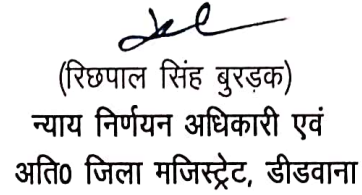 (रिछपाल सिंह बुरड़क)
न्याय निर्णयन अधिकारी एवं
अति० जिला मजिस्ट्रेट, डीडवाना